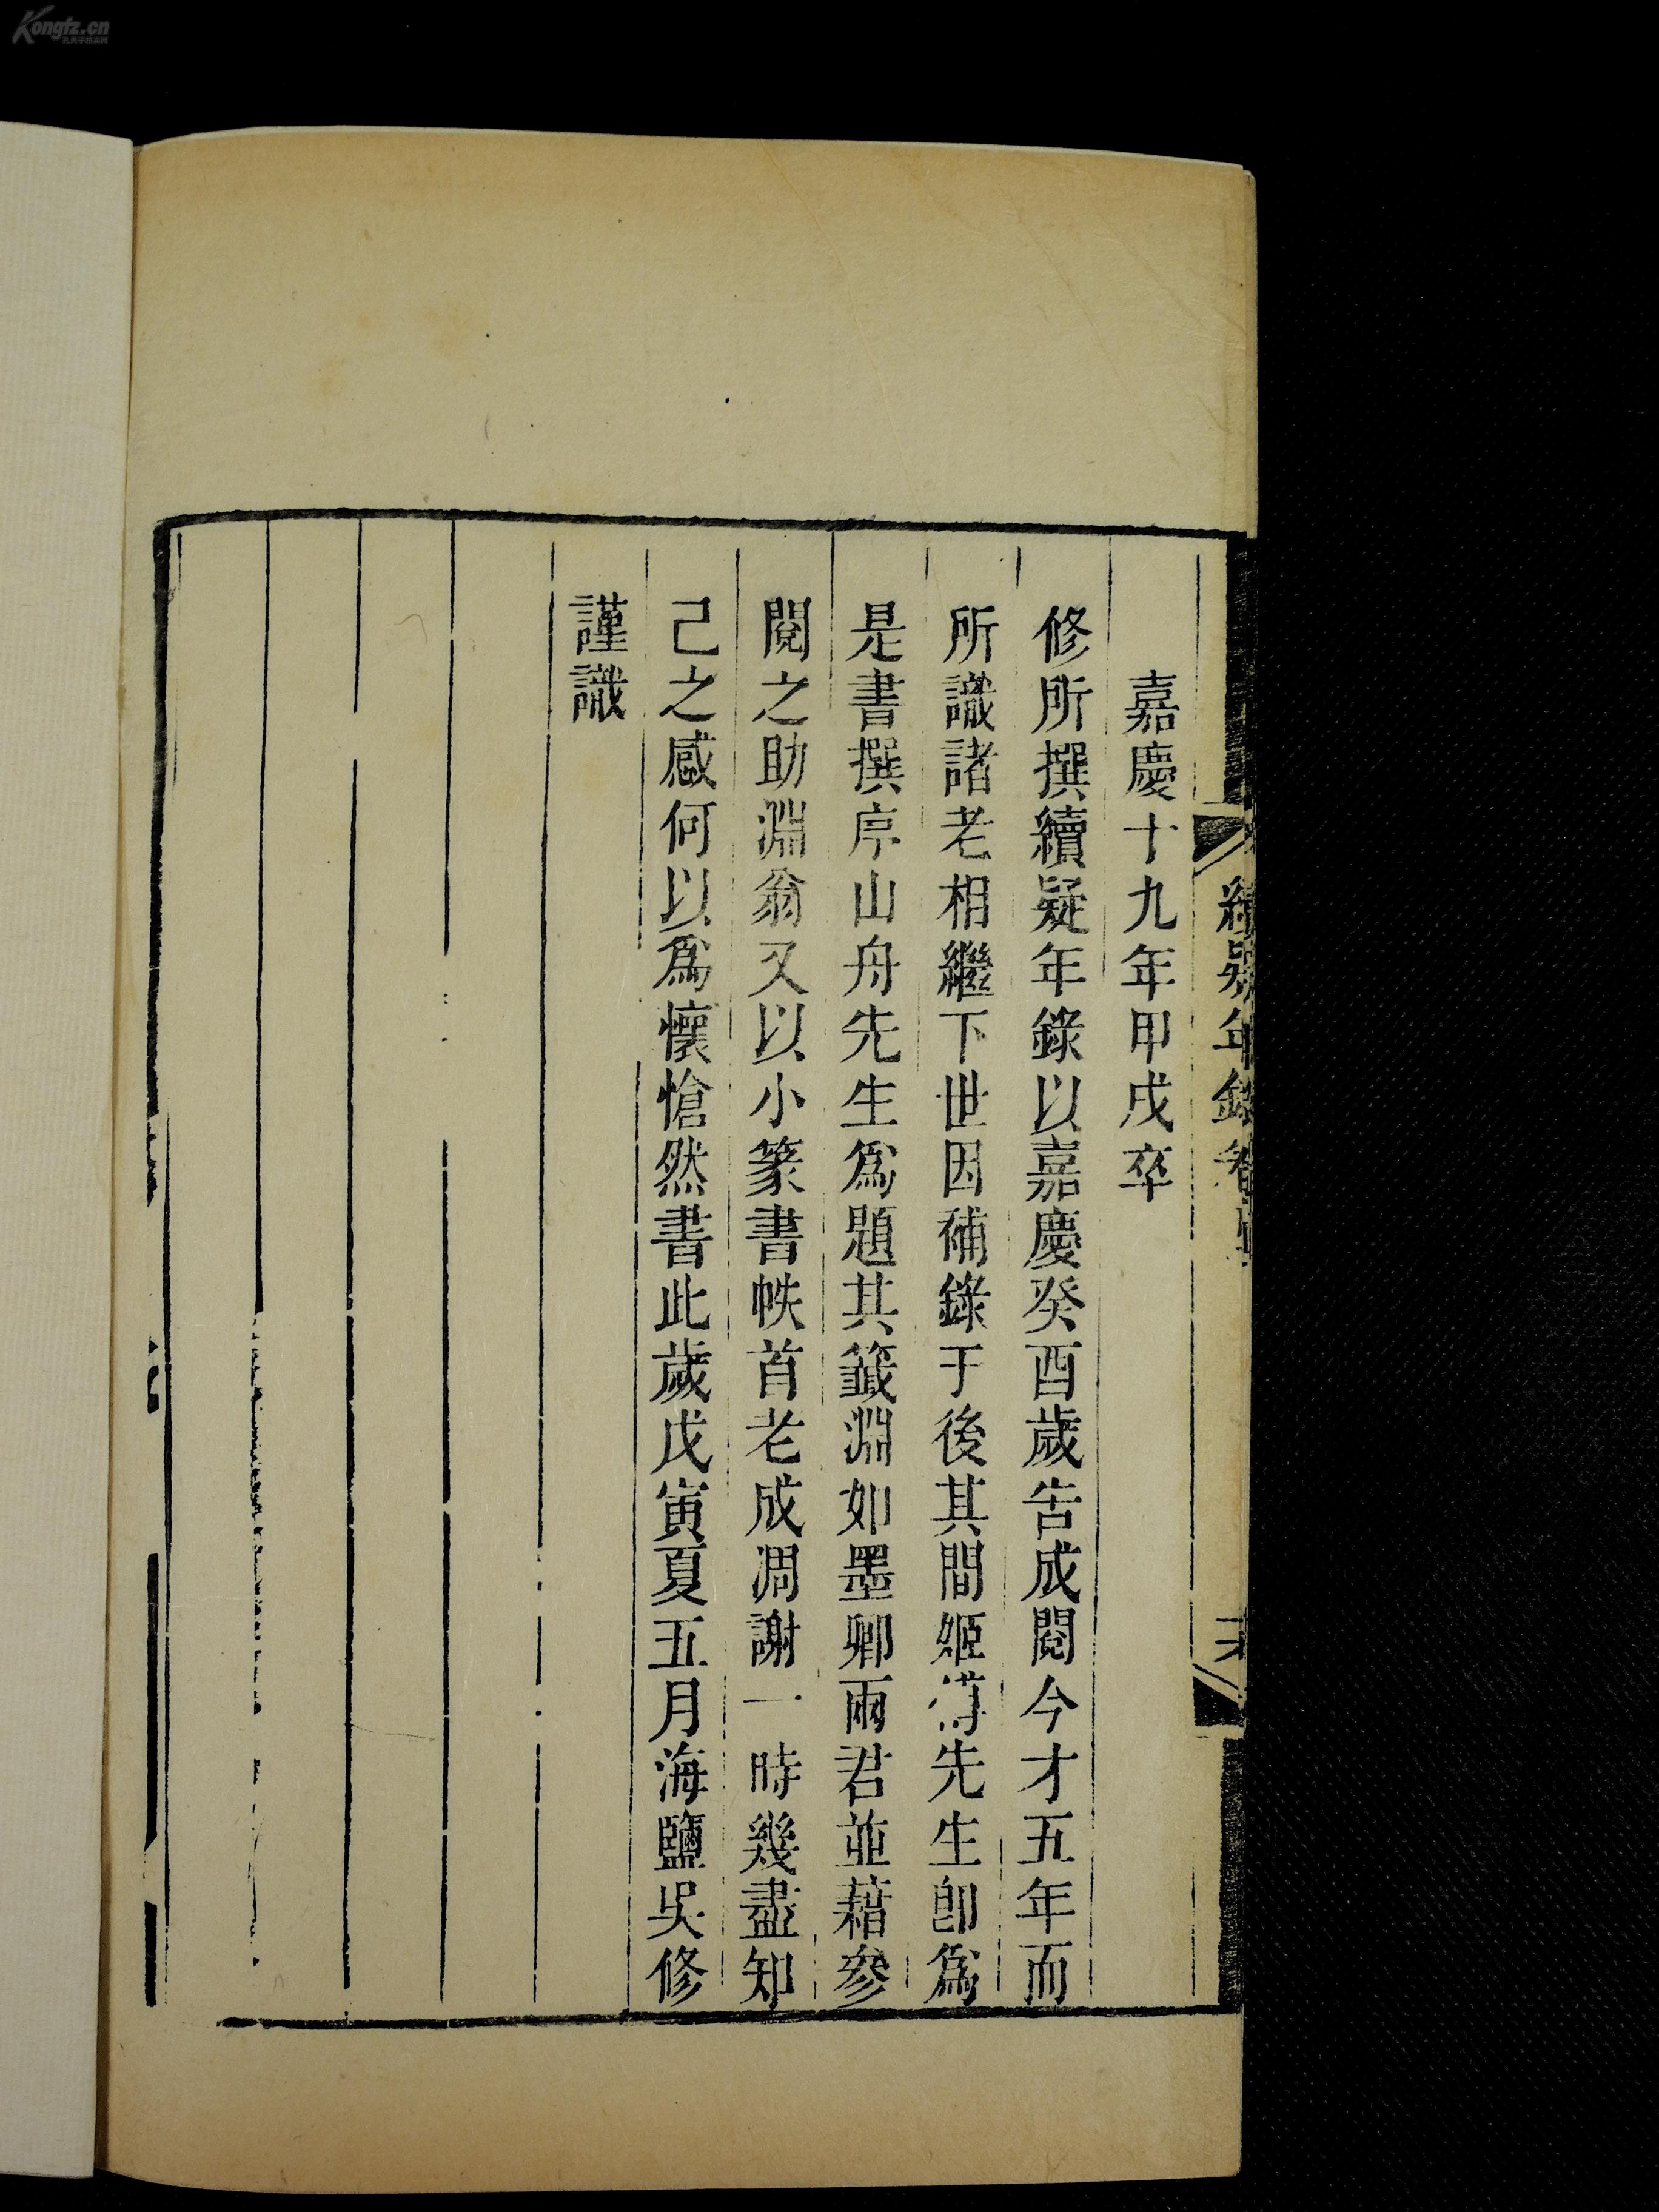 嘉慶十九年甲戌卒
修所撰續疑年錄以嘉慶癸酉歲告成閱今才五年而
所識諸老相繼下世因補錄于後其間姬傳先生卽為
是書撰序山舟先生為題其籤淵如墨卿兩君並藉參
閱之助淵翁又以小篆書帙首老成凋謝一時幾盡知
己之感何以為懷愴然書此歲戊寅夏五月海鹽吳修
謹識
續疑年錄卷
Kongfz.cn